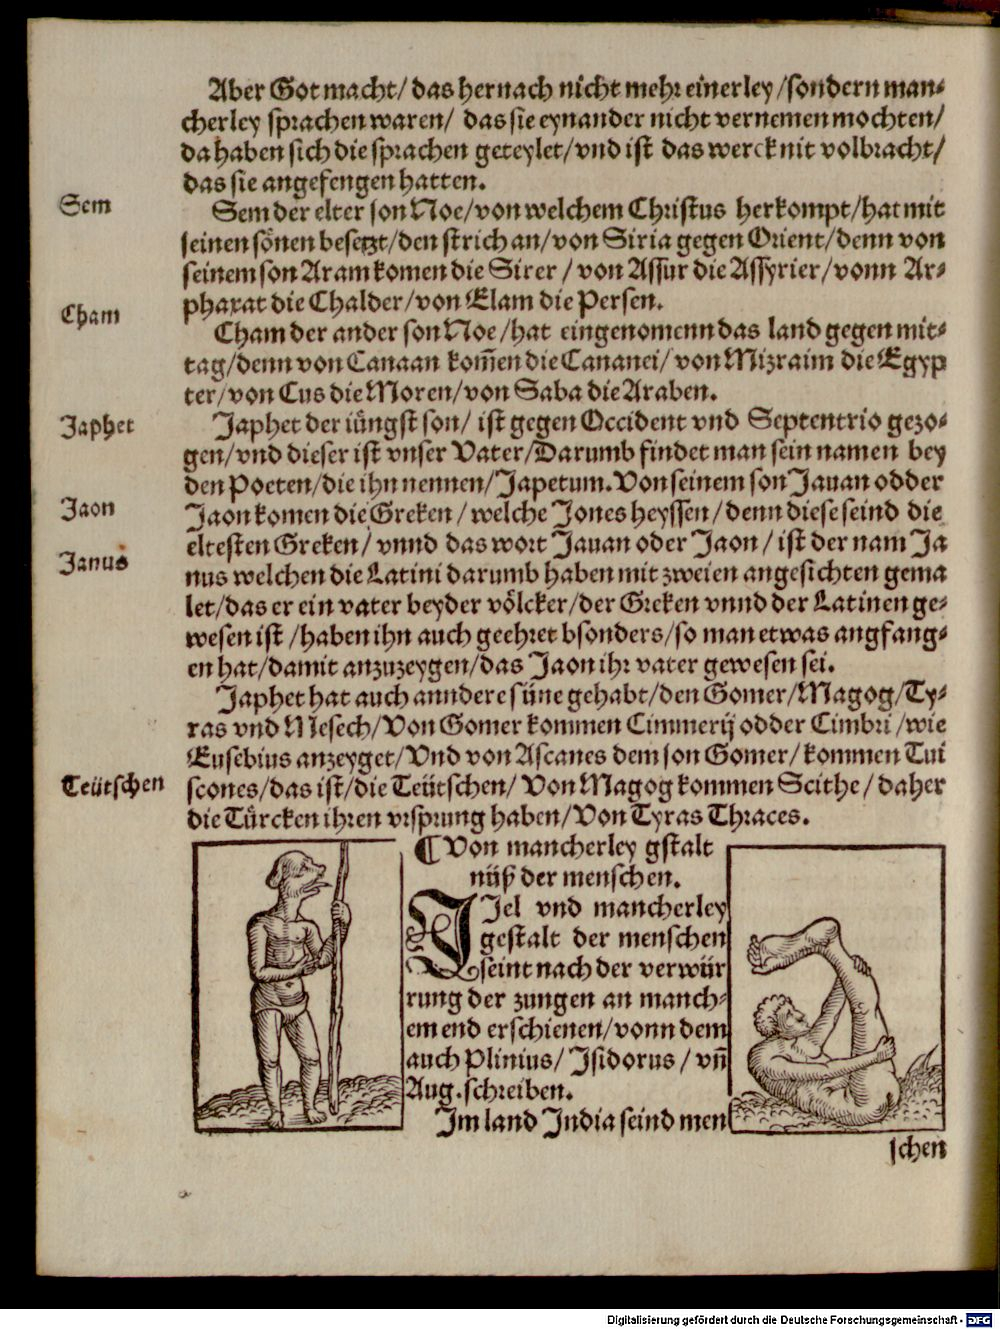 Aber Got macht/ das hernach nicht mehr einerley/sondern man-
cherley sprachen waren/ das sie eynander nicht vernemen mochten/
da haben sich die sprachen geteylet/vnd ist das werck nit volbracht/
das sie angefengen hatten.
Sem
Sem der elter son Noe/von welchem Christus herkompt/hat mit
seinen sönen besetzt/den strich an/von Siria gegen Orient/denn von
seinem son Aram komen die Sirer / von Assur die Assyrier/vonn Ar-
phaxat die Chalder/von Elam die Persen.
Cham
Cham der ander son Noe/hat eingenomenn das land gegen mit-
tag/denn von Canaan kom̄en die Cananei/ von Mizraim die Egyp
ter/von Cus die Moren/von Saba die Araben.
Japhet
Japhet der iüngst son/ ist gegen Occident vnd Septentrio gezo-
gen/vnd dieser ist vnser Vater/Darumb findet man sein namen bey
den Poeten/die ihn nennen/Japetum. Von seinem son Jauan odder
Jaon
Jaon komen die Greken / welche Jones heyssen/denn diese seind die
eltesten Greken/ vnnd das wort Jauan oder Jaon / ist der nam Ja
Janus
nus welchen die Latini darumb haben mit zweien angesichten gema
let/das er ein vater beyder völcker/der Greken vnnd der Latinen ge-
wesen ist /haben ihn auch geehret bsonders/so man etwas angfang-
en hat/damit anzuzeygen/das Jaon ihr vater gewesen sei.
Japhet hat auch anndere süne gehabt/den Gomer/Magog/Ty-
ras vnd Mesech/Von Gomer kommen Cimmerij odder Cimbri /wie
Eusebius anzeyget/Vnd von Ascanes dem son Gomer/kommen Tui
Teütschen
scones/das ist/die Teütschen/ Von Magog kommen Scithe / daher
die Türcken ihren vrsprung haben/Von Tyras Thraces.
¶ Von mancherley gstalt
nüß der menschen.
VJel vnd mancherley
gestalt der menschen
seint nach der verwür
rung der zungen an manch-
em end erschienen/vonn dem
auch Plinius/ Isidorus / vn̄
Aug. schreiben.
Im land India seind men
schen
Digitalisierung gefördert durch die Deutsche Forschungsgemeinschaft - DFG